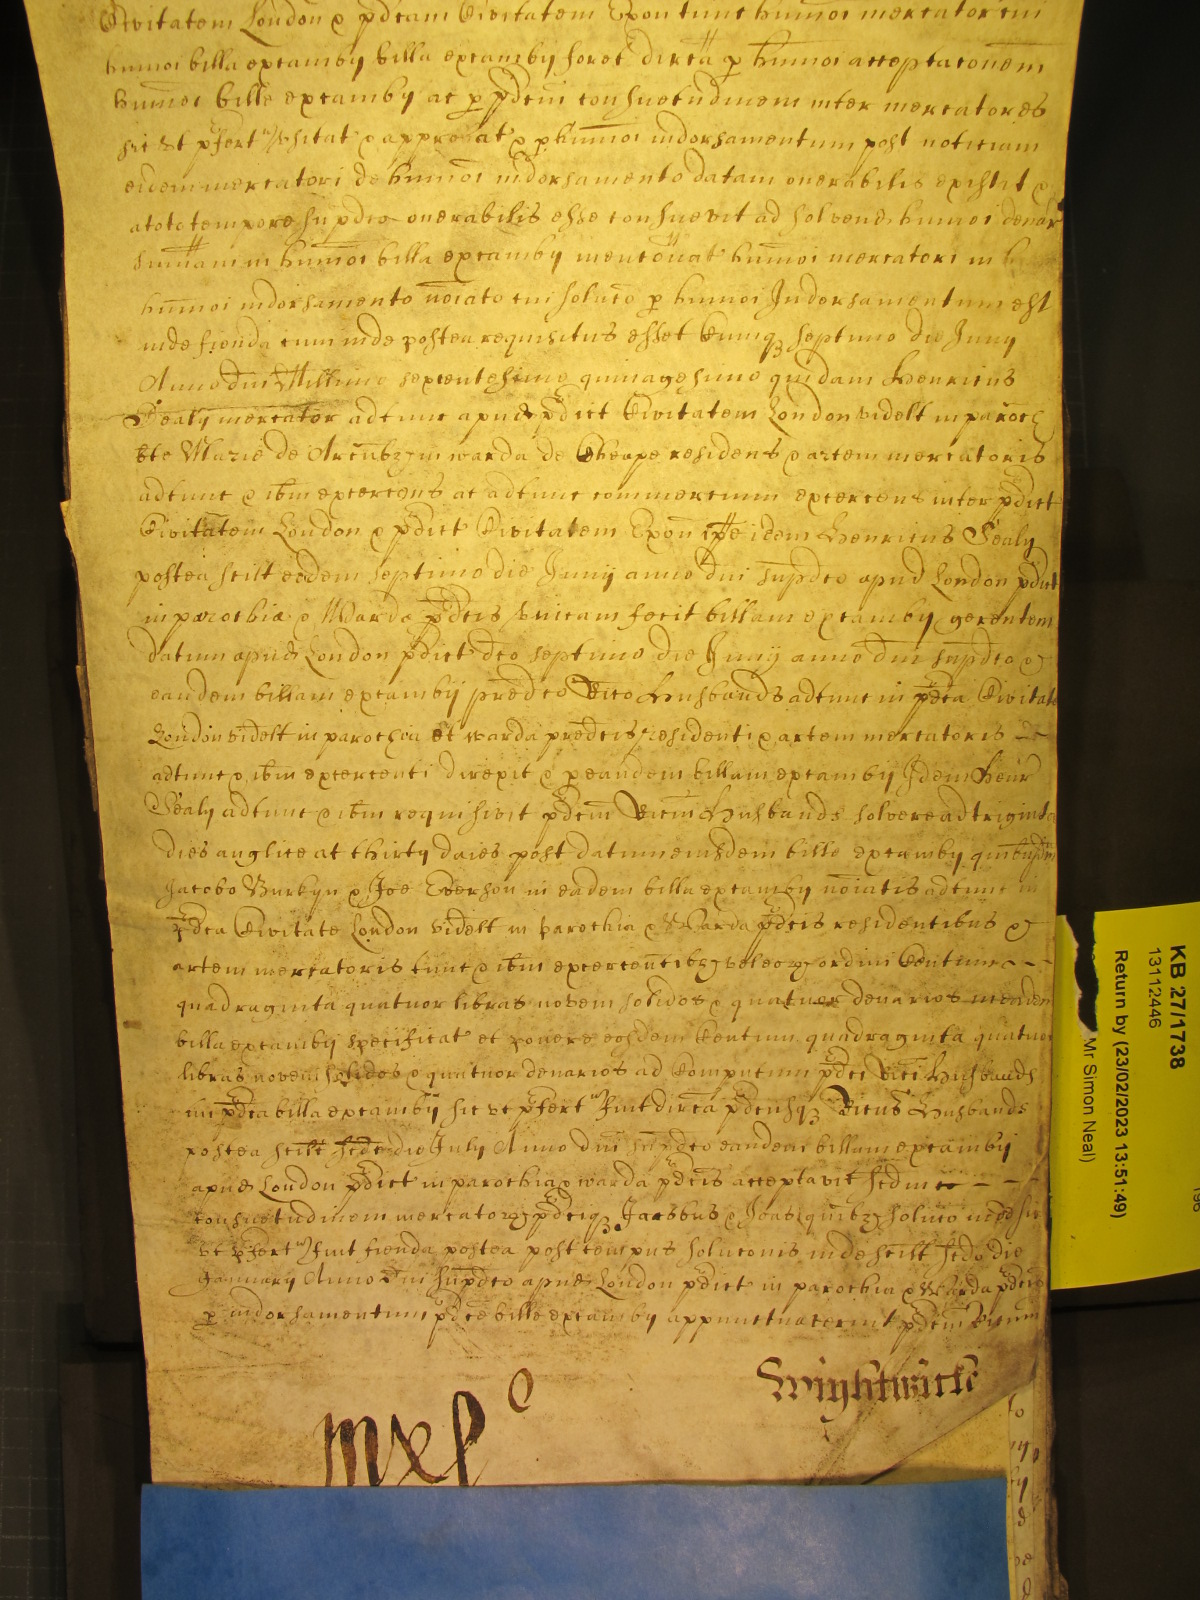 Civitatem London & pdcam Civitatem Exon tunc humoi mercator cui
humoi billa excamby billa excamby foret dircta p humoi acceptaconem
humoi bille excamby ac p pdcm consuetudinem inter mercatores
sic ut pfert usitat & approbat & p humoi indorsamentum post noticiam
eidem mercatori de humoi indorsamento datam onerabilis existit &
a toto tempore supdco onerabilis esse consuevit ad solvend humoi denar
summam in humoi billa excamby menconat humoi mercatori in
humoi indorsamento noiato cui soluco p humoi Indorsamentum est
inde fienda cum inde postea requisitus esset Cumq septimo die Juny
Anno dni Millimo sexcentesimo quinagesimo quidam Henricus
Sealy mercator adtunc apud pdict Civitatem London videlt in paroch
bte Marie de Arcubz in warda de Cheape residens & artem mercatoris
adtunc & ibm exercens ac adtunc commercium exercens inter pdict
Civitatem London & pdict Civitatem Exon ipe idem Henricus Sealy
postea scilt eodem septimo die Junij anno dni supdco apud London pdict
in parochia & Warda pdcis unicam fecit billam excamby gerentem
datum apud London pdict dco septimo die Junij anno dni supdco &
eandem billam excambij predco Rico Husbands adtunc in pdca Civitate
London videlt in parochia et warda predcis residenti & artem mercatoris
adtunc & ibm exercenti direxit & p eandem billam excamby Idem Henr
Sealy adtunc & ibm requisivit pdcm Ricm Husbands solvere ad triginta
dies anglice at thirty daies post datum eiusdem bille excamby quibusdm
Jacobo Burkyn & Joe Everson in eadem billa excamby noiatis adtunc in
pdca Civitate London videlt in parochia & Warda pdcis residentibus &
artem mercatoris tunc & ibm exercentibz vel eorz ordini Centum
quadraginta quatuor libras novem solidos & quatuor denarios in eadem
billa excamby specificat et ponere eosdem Centum quadraginta quatuor
libras novem solidos & quatuor denarios ad Computum pdci Rici Husbands
cui pdca billa excamby sic ut pfert fuit dircta pdcusq Ricus Husbands
postea scilt scdo die July Anno dni supdco eandem billam excamby
apud London pdict in parochia & warda pdcis acceptavit scdm
consuetudinem mercatorz pdciq Jacobus & Joes quibz soluco inde sic
ut pfert fuit fienda postea post tempus soluconis inde scilt scdo die
January Anno dni supdco apud London pdict in parochia & Warda pdcis
p indorsamentum pdce bille excamby appunctuaverint pdcm Ricum
Wightwicke
KB 27/1738
13112446
Return by (23/02/2023 13:51:49)
Mr Simon Neal)